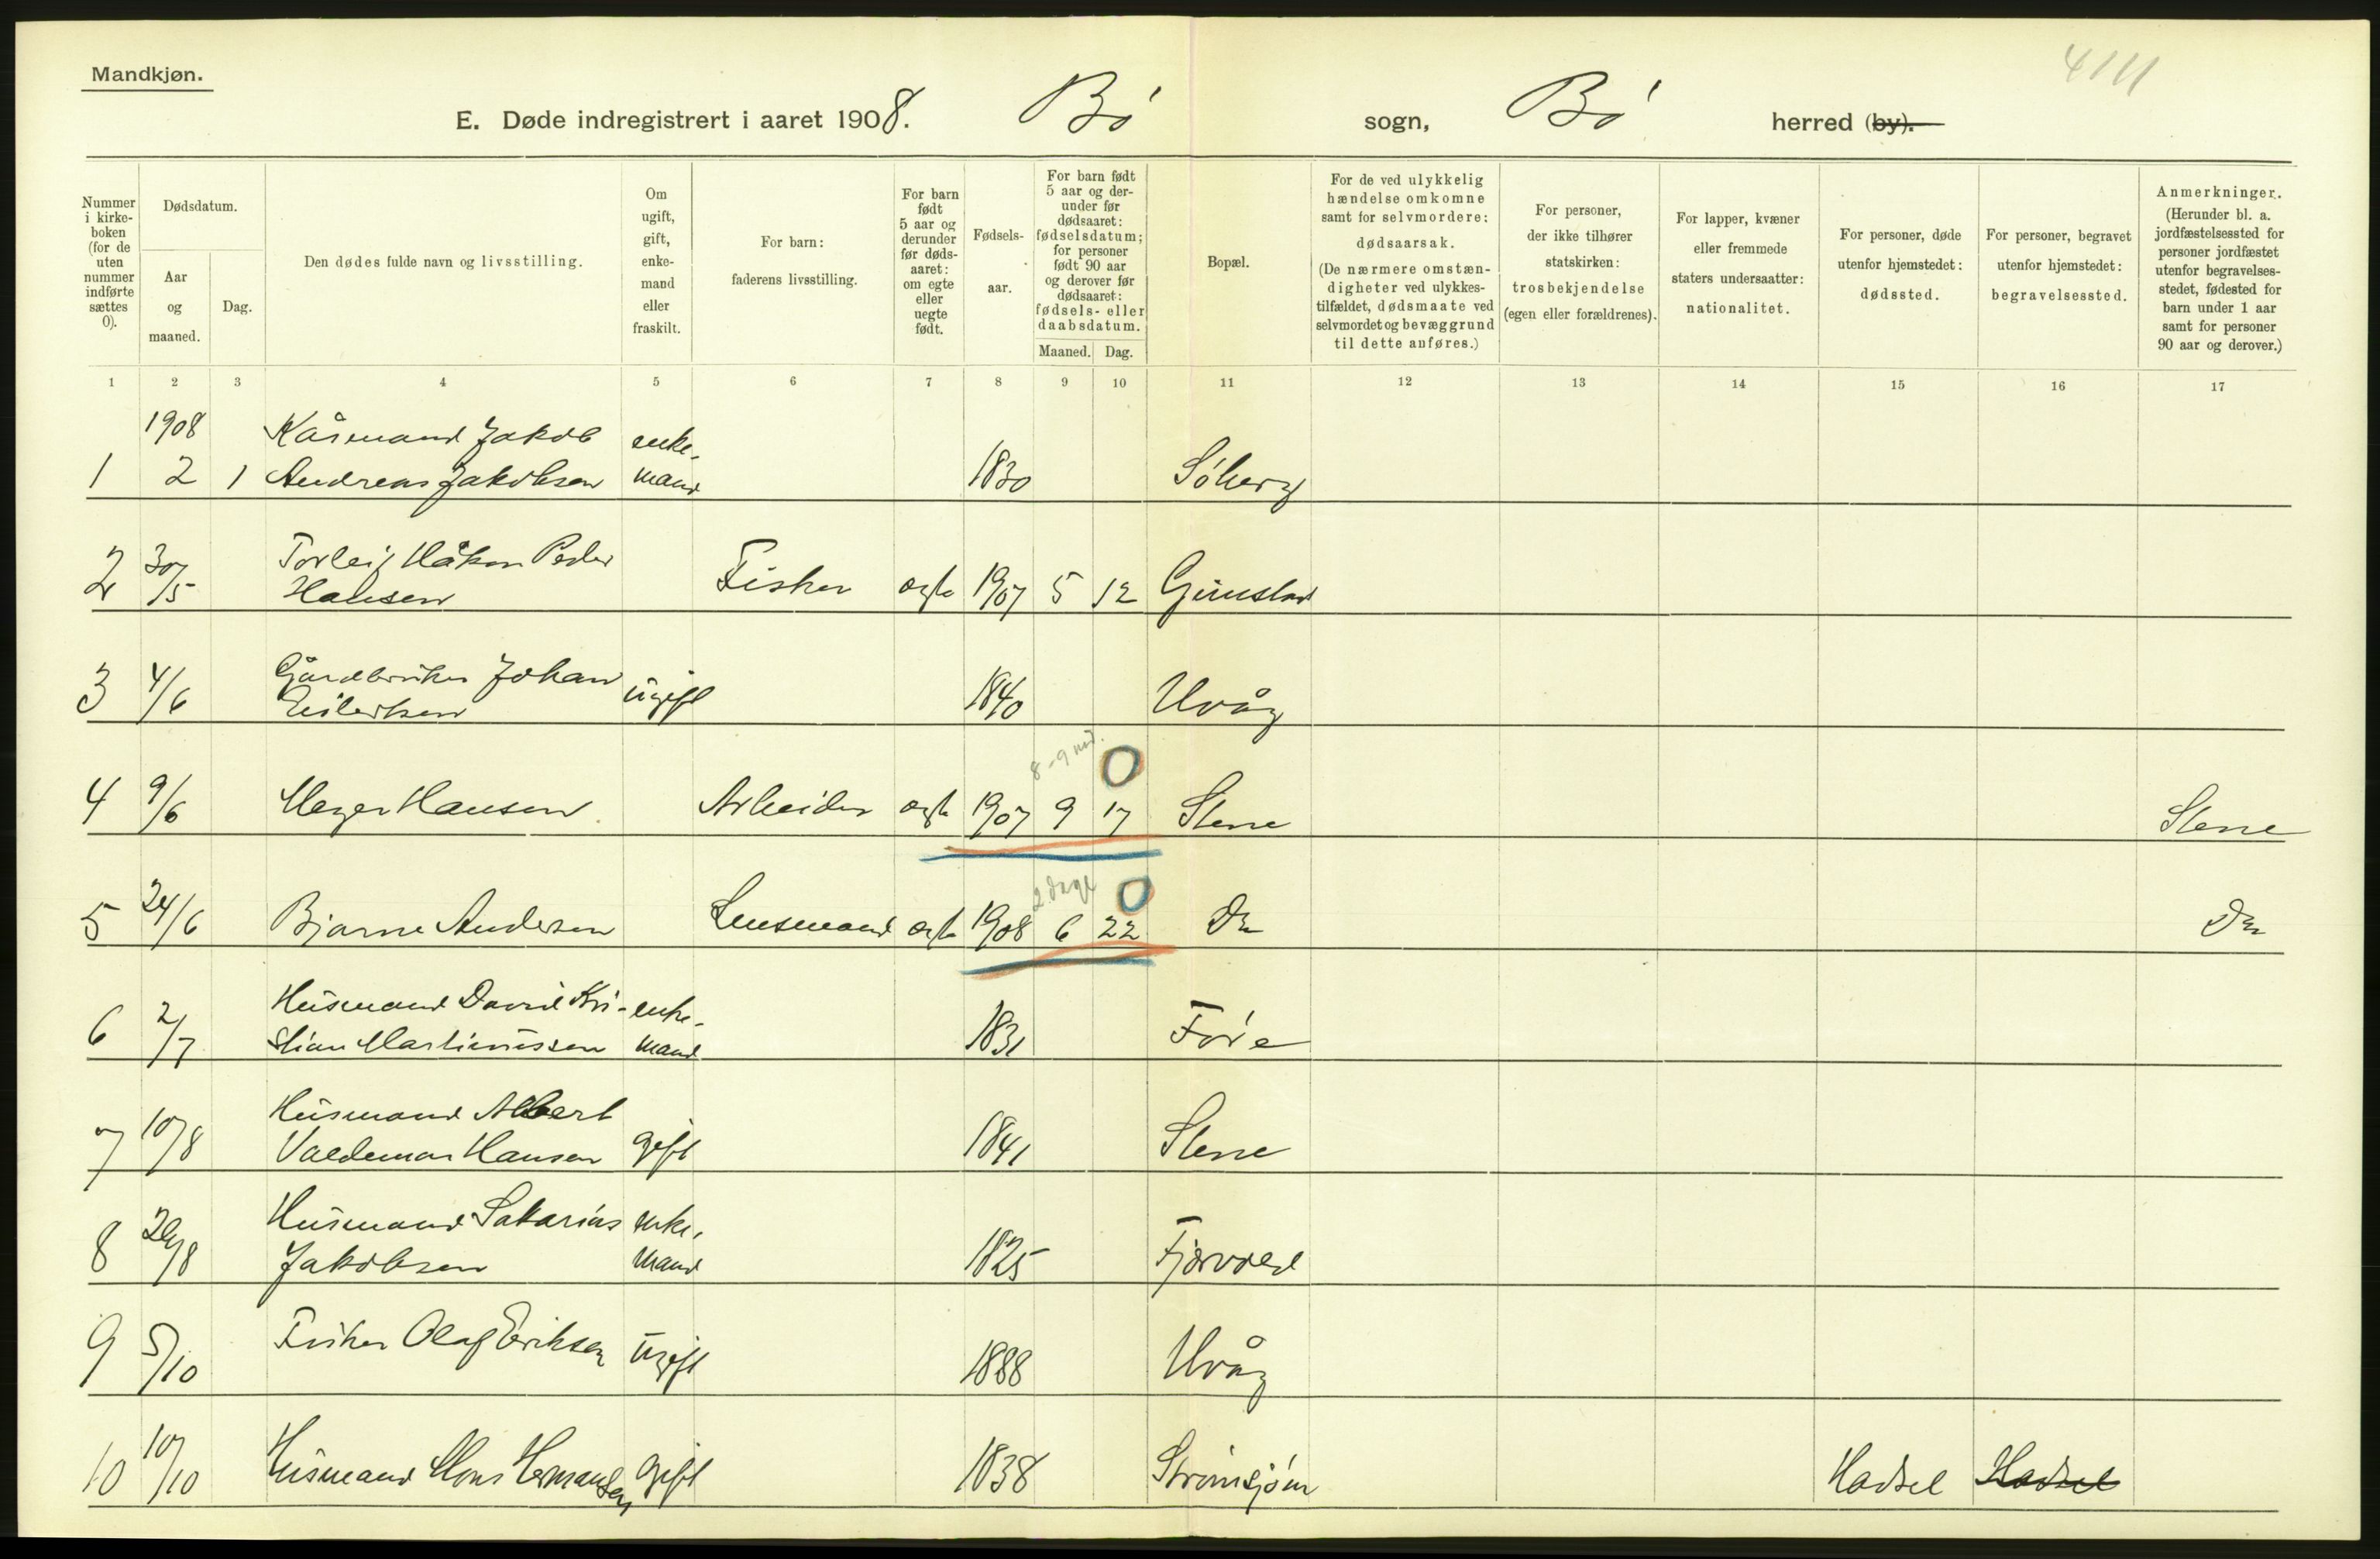 Mandkjøn.
4111
E. Døde indregistrert i aaret 1908. Bö sogn, Bö herred (by).
Nummer i kirke-boken (for de uten nummer indførte sættes 0).
Dødsdatum.
Aar og maaned.
Dag.
Den dødes fulde navn og livsstilling.
Om ugift, gift, enke-mand eller fraskilt.
For barn: faderens livsstilling.
For barn født 5 aar og derunder før døds-aaret: om egte eller uegte født.
Fødsels-aar.
For barn født 5 aar og der-under før dødsaaret: fødselsdatum; for personer født 90 aar og derover før dødsaaret: fødsels- eller daabsdatum.
Maaned. Dag.
Bopæl.
For de ved ulykkelig hændelse omkomne samt for selvmordere: dødsaarsak. (De nærmere omstæn-digheter ved ulykkes-tilfældet, dødsmaate ved selvmordet og bevæggrund til dette anføres.)
For personer, der ikke tilhører statskirken: trosbekjendelse (egen eller forældrenes).
For lapper, kvæner eller fremmede staters undersaatter: nationalitet.
For personer, døde utenfor hjemstedet: dødssted.
For personer, begravet utenfor hjemstedet: begravelsessted.
Anmerkninger. (Herunder bl. a. jordfæstelsessted for personer jordfæstet utenfor begravelses-stedet, fødested for barn under 1 aar samt for personer 90 aar og derover.)
1 2 3 4 5 6 7 8 9 10 11 12 13 14 15 16 17
1908 Kårmand Jakob enke-
1 2 1 Andreas Jakobsen mand 1830 Söberg
Torleif Håkon Peder
2 30/5 Hansen Fisker egte 1907 5 12 Grimstad
Gårdbruker Johan
3 4/6 Eilertsen ugift 1840 Uvåg
8-9 md. 0
4 9/6 Meyer Hansen Arbeider egte 1907 9 17 Stene Stene
2 dage 0
5 24/6 Bjarne Andersen Lensmand egte 1908 6 22 Do Do
Husmand David Kri- enke-
6 2/7 stian Martinussen mand 1831 Före
Husmand Albert
7 10/8 Valdemar Hansen gift 1841 Stene
Husmand Sakarias enke-
8 29/8 Jakobsen mand 1825 Fjærvoll
9 5/10 Fisker Olaf Eriksen ugift 1888 Uvåg
10 10/10 Husmand Mons Hermansen gift 1838 Strömsjöen Hadsel Hadsel